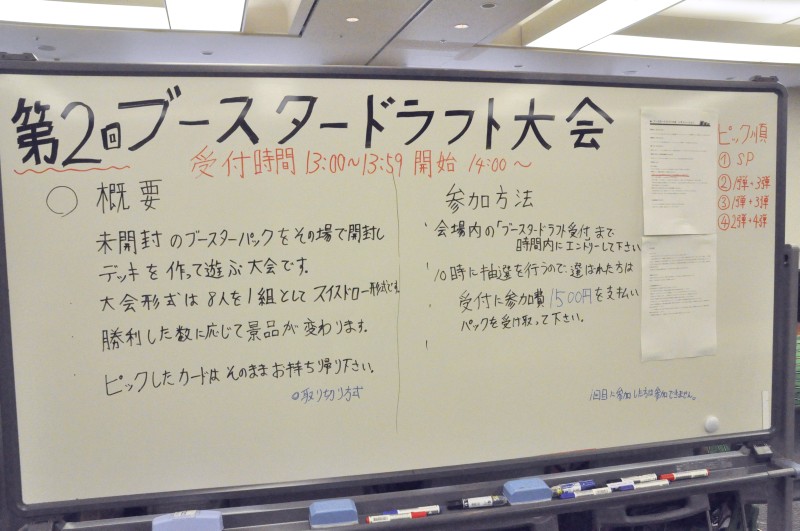 第2回ブースタードラフト大会
受付時間 13:00～13:59 開始 14:00～
○ 概要
未開封のブースターパックをその場で開封し
デッキを作って遊ぶ大会です。
大会形式は8人を1組としてスイスドロー形式です。
勝利した数に応じて景品が変わります。
ピックしたカードはそのままお持ち帰り下さい。
○取り切り方式
参加方法
会場内の「ブースタードラフト受付」まで
時間内にエントリーして下さい
10時に抽選を行うので選ばれた方は
受付に参加費1500円を支払い
パックを受け取って下さい。
1回目に参加した方は参加できません。
ピック順
① SP
② 1弾+3弾
③ 1弾+3弾
④ 2弾+4弾